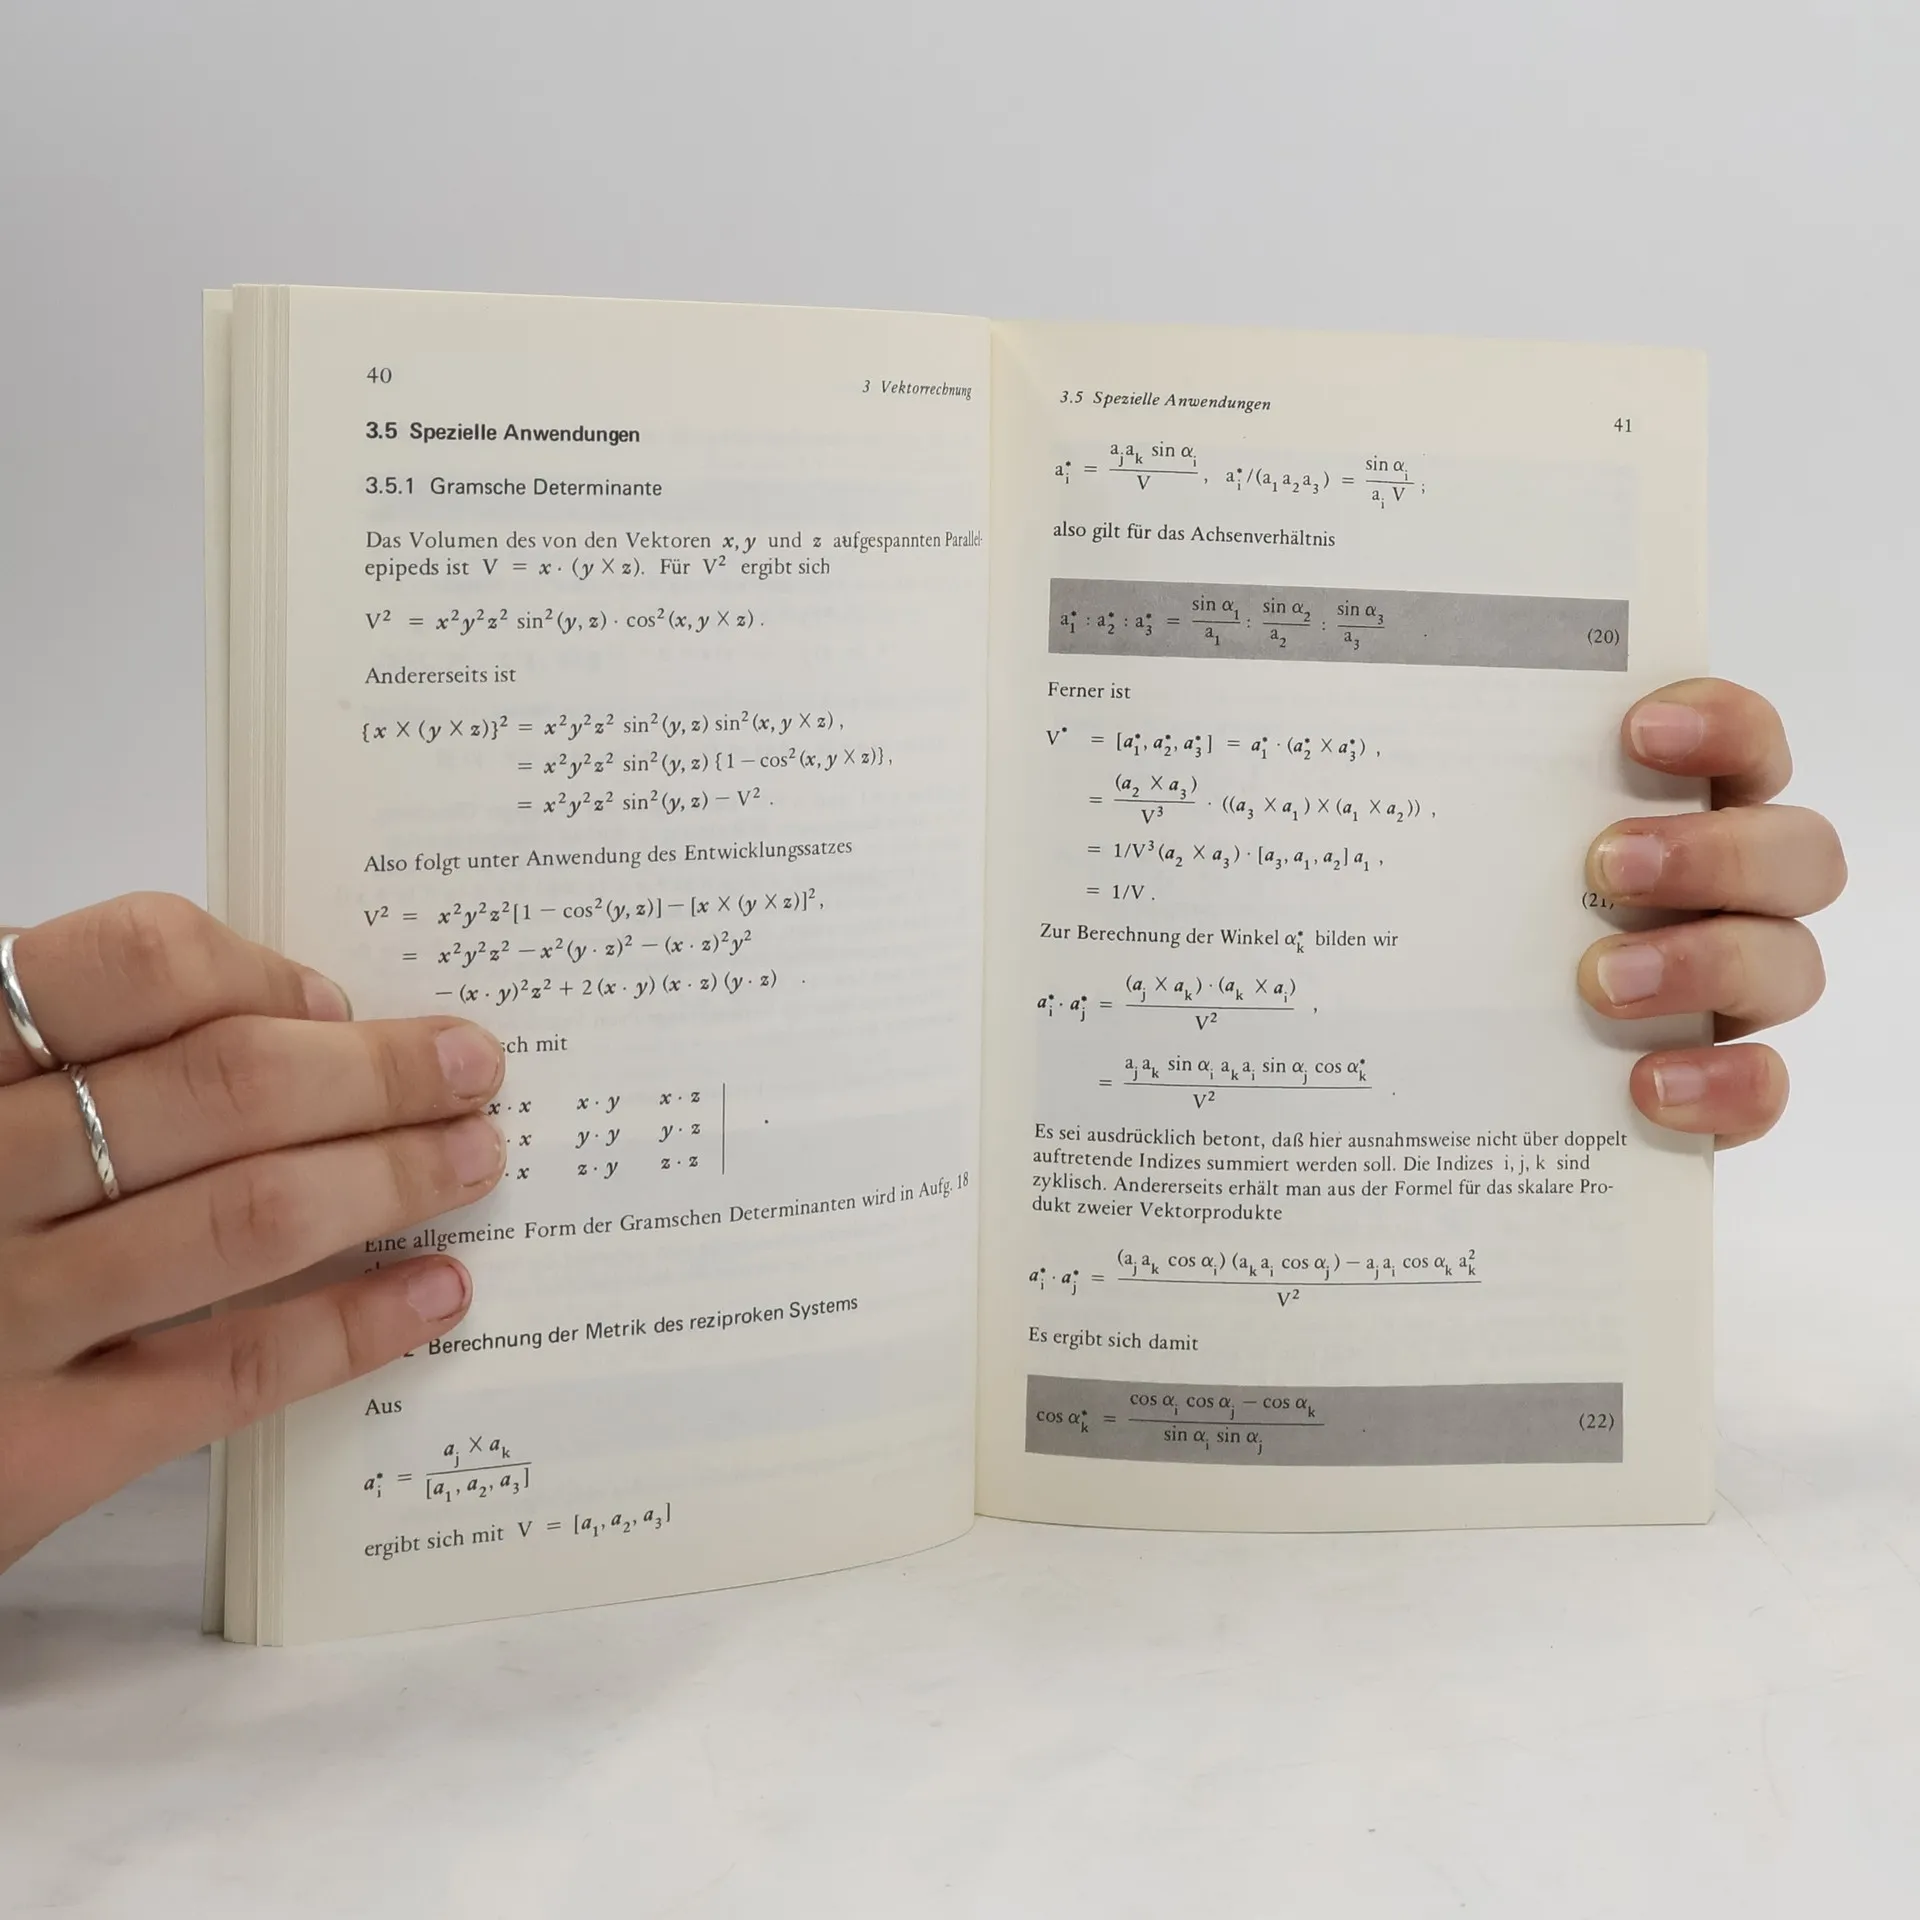 40
3 Vektorrechnung
3.5 Spezielle Anwendungen
3.5.1 Gramsche Determinante
Das Volumen des von den Vektoren x, y und z aufgespannten Parallel-
epipeds ist V = x · (y × z). Für V² ergibt sich
V² = x²y²z² sin²(y, z) · cos²(x, y × z).
Andererseits ist
{x × (y × z)}² = x²y²z² sin²(y, z) sin²(x, y × z),
= x²y²z² sin²(y, z) {1 − cos²(x, y × z)},
= x²y²z² sin²(y, z) − V².
Also folgt unter Anwendung des Entwicklungssatzes
V² = x²y²z²[1 − cos²(y, z)] − [x × (y × z)]²,
= x²y²z² − x²(y · z)² − (x · z)²y²
− (x · y)²z² + 2(x · y)(x · z)(y · z) .
mit
x · x x · y x · z
· x y · y y · z
· x z · y z · z
Eine allgemeine Form der Gramschen Determinanten wird in Aufg. 18
Berechnung der Metrik des reziproken Systems
Aus
a_i^* = (a_j × a_k) / [a_1, a_2, a_3]
ergibt sich mit V = [a_1, a_2, a_3]
3.5 Spezielle Anwendungen
41
a_i^* = (a_j a_k sin α_i) / V , a_i^*/(a_1 a_2 a_3) = (sin α_i) / (a_i V) ;
also gilt für das Achsenverhältnis
a_1^* : a_2^* : a_3^* = (sin α_1) / a_1 : (sin α_2) / a_2 : (sin α_3) / a_3 . (20)
Ferner ist
V^* = [a_1^*, a_2^*, a_3^*] = a_1^* · (a_2^* × a_3^*) ,
= (a_2 × a_3) / V³ · ((a_3 × a_1) × (a_1 × a_2)) ,
= 1/V³ (a_2 × a_3) · [a_3, a_1, a_2] a_1 ,
= 1/V . (21)
Zur Berechnung der Winkel α_k^* bilden wir
a_i^* · a_j^* = ((a_j × a_k) · (a_k × a_i)) / V² ,
= (a_j a_k sin α_i a_k a_i sin α_j cos α_k^*) / V² .
Es sei ausdrücklich betont, daß hier ausnahmsweise nicht über doppelt
auftretende Indizes summiert werden soll. Die Indizes i, j, k sind
zyklisch. Andererseits erhält man aus der Formel für das skalare Pro-
dukt zweier Vektorprodukte
a_i^* · a_j^* = ((a_j a_k cos α_i)(a_k a_i cos α_j) − a_j a_i cos α_k a_k²) / V²
Es ergibt sich damit
cos α_k^* = (cos α_i cos α_j − cos α_k) / (sin α_i sin α_j) . (22)